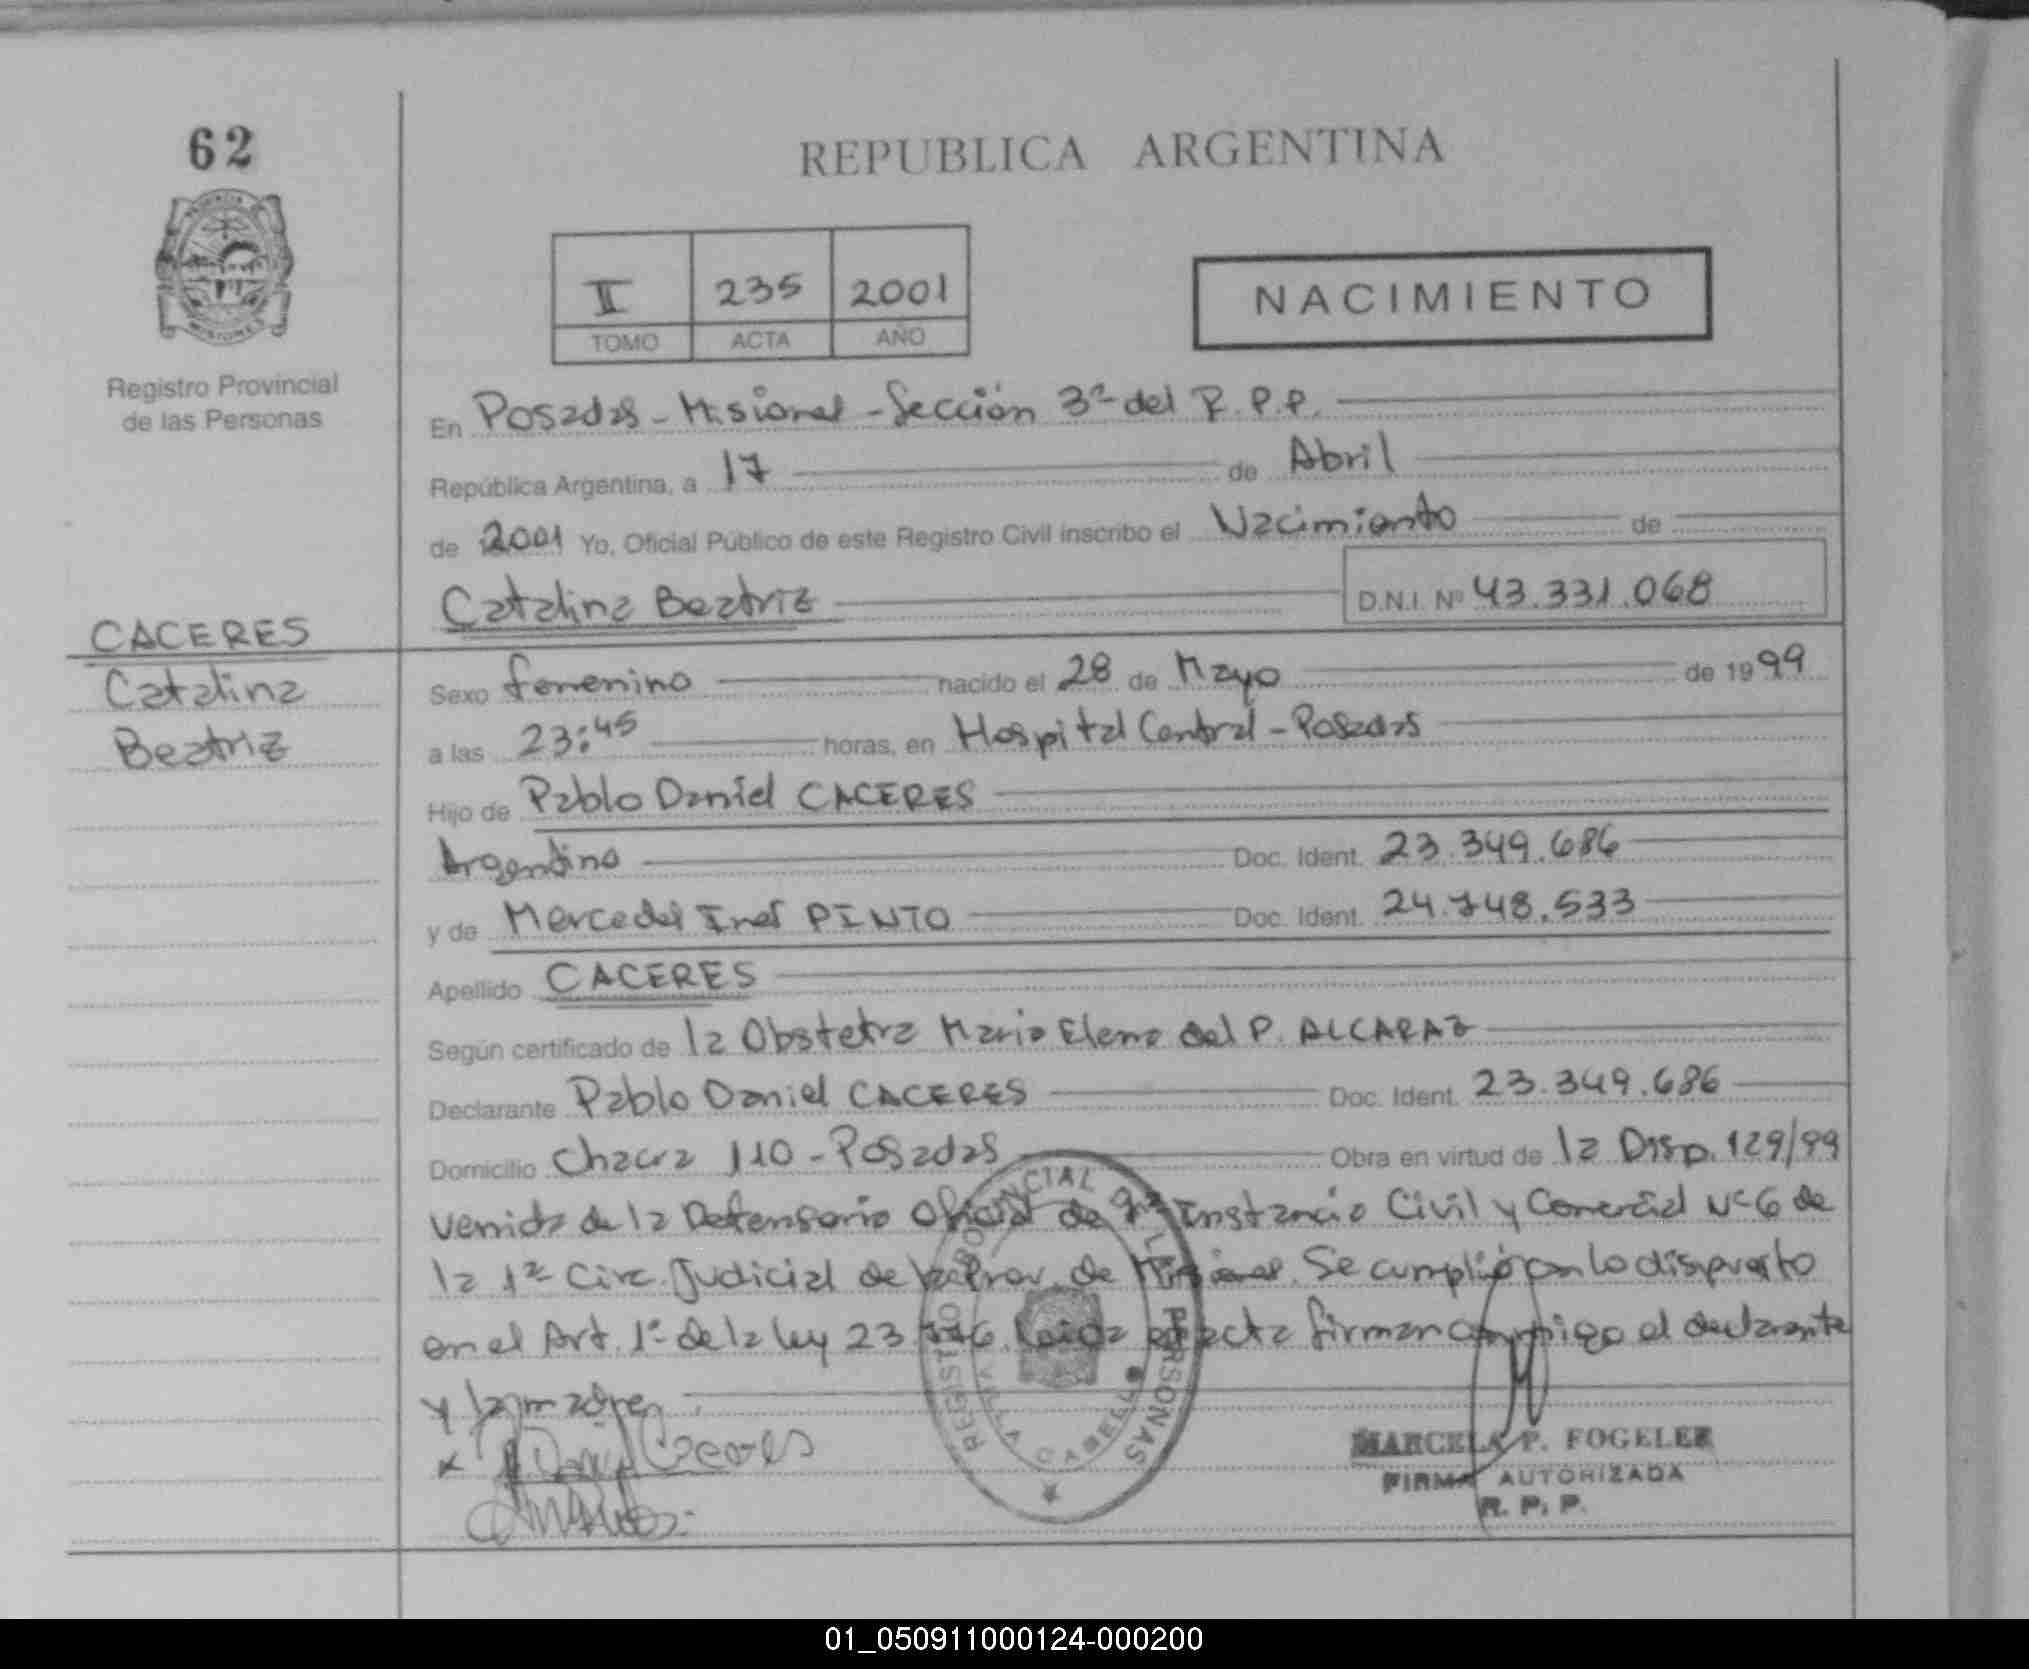 62
REPUBLICA ARGENTINA
II 235 2001
TOMO ACTA AÑO
NACIMIENTO
PROVINCIA DE MISIONES
Registro Provincial
de las Personas
En Posadas - Misiones - Sección 3ª del R.P.P.
República Argentina, a 17 de Abril
de 2001 Yo, Oficial Público de este Registro Civil inscribo el Nacimiento de
Catalina Beatriz D.N.I. Nº 43.331.068
CACERES
Catalina
Beatriz
Sexo femenino nacido el 28 de Mayo de 1999
a las 23:45 horas, en Hospital Central - Posadas
Hijo de Pablo Daniel CACERES
Argentino Doc. Ident. 23.349.686
y de Mercedes Ines PINTO Doc. Ident. 24.748.533
Apellido CACERES
Según certificado de la Obstetra Maria Elena del P. ALCARAZ
Declarante Pablo Daniel CACERES Doc. Ident. 23.349.686
Domicilio Chacra 110 - Posadas Obra en virtud de la Disp. 129/99
venida de la Defensoria Oficial de 1ª Instancia Civil y Comercial Nº 6 de
la 1ª Circ. Judicial de la Prov. de Misiones. Se cumplió con lo dispuesto
en el Art. 1º de la ley 23 Leida el acta firman conmigo el declarante
y la madre
x Caceres
REGISTRO PROVINCIAL DE LAS PERSONAS
VILLA CABELLO
MARCELA P. FOGELER
FIRMA AUTORIZADA
R. P. P.
01_050911000124-000200